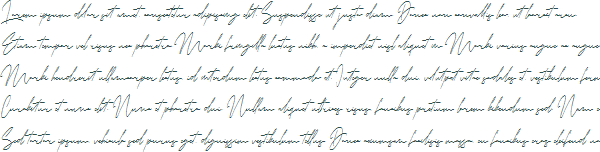 Lorem ipsum dolor sit amet consectetur adipiscing elit Suspendisse et justo diam Donec non convallis leo ut laoreet arcu
Etiam tempor vel risus nec pharetra Morbi fringilla luctus nibh a imperdiet nisl aliquet in Morbi varius augue ac augue
Morbi hendrerit ullamcorper luctus id interdum luctus commodo et Integer nulla dui volutpat vitae sodales et vestibulum
Curabitur et urna elit Nunc et pharetra dui Nullam aliquet ultrices risus faucibus pretium lorem bibendum sed Nam
Sed tortor ipsum vehicula sed purus eget dignissim vestibulum tellus Donec accumsan facilisis massa eu faucibus eros eleifend